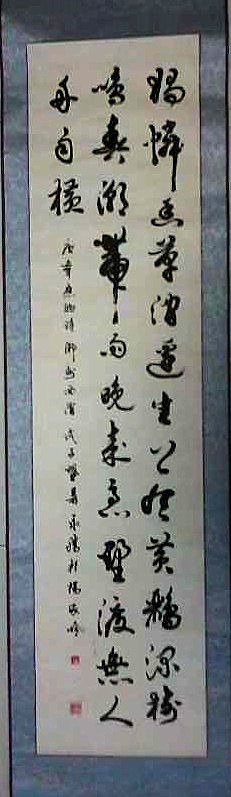 獨憐幽草澗邊生上有黃鸝深樹
鳴春潮帶雨晚來急野渡無人
舟自橫
唐韋應物詩滁州西澗戊子